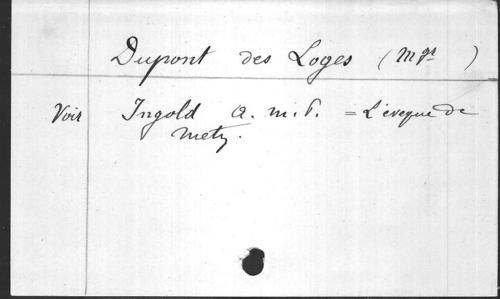 Dupont des Loges (Mgr )
Voir Ingold A. M. P. = L'éveque de
Metz.